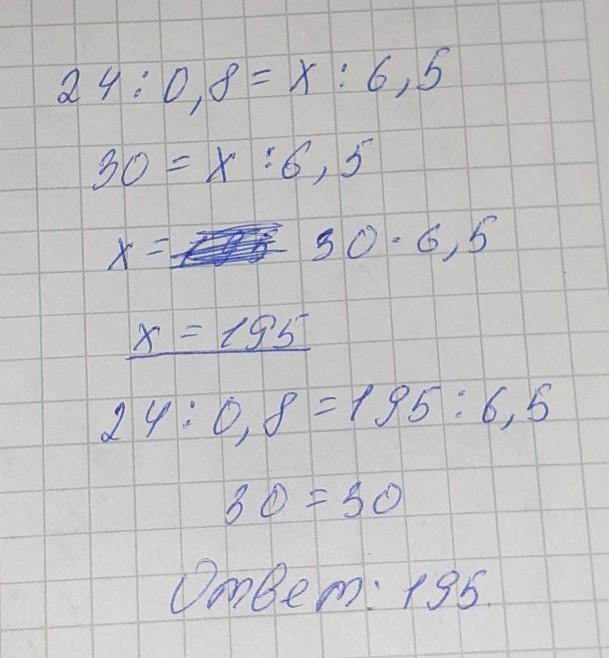 24 : 0,8 = x : 6,5
30 = x : 6,5
x = 30 · 6,5
x = 195
24 : 0,8 = 195 : 6,5
30 = 30
Ответ: 195.